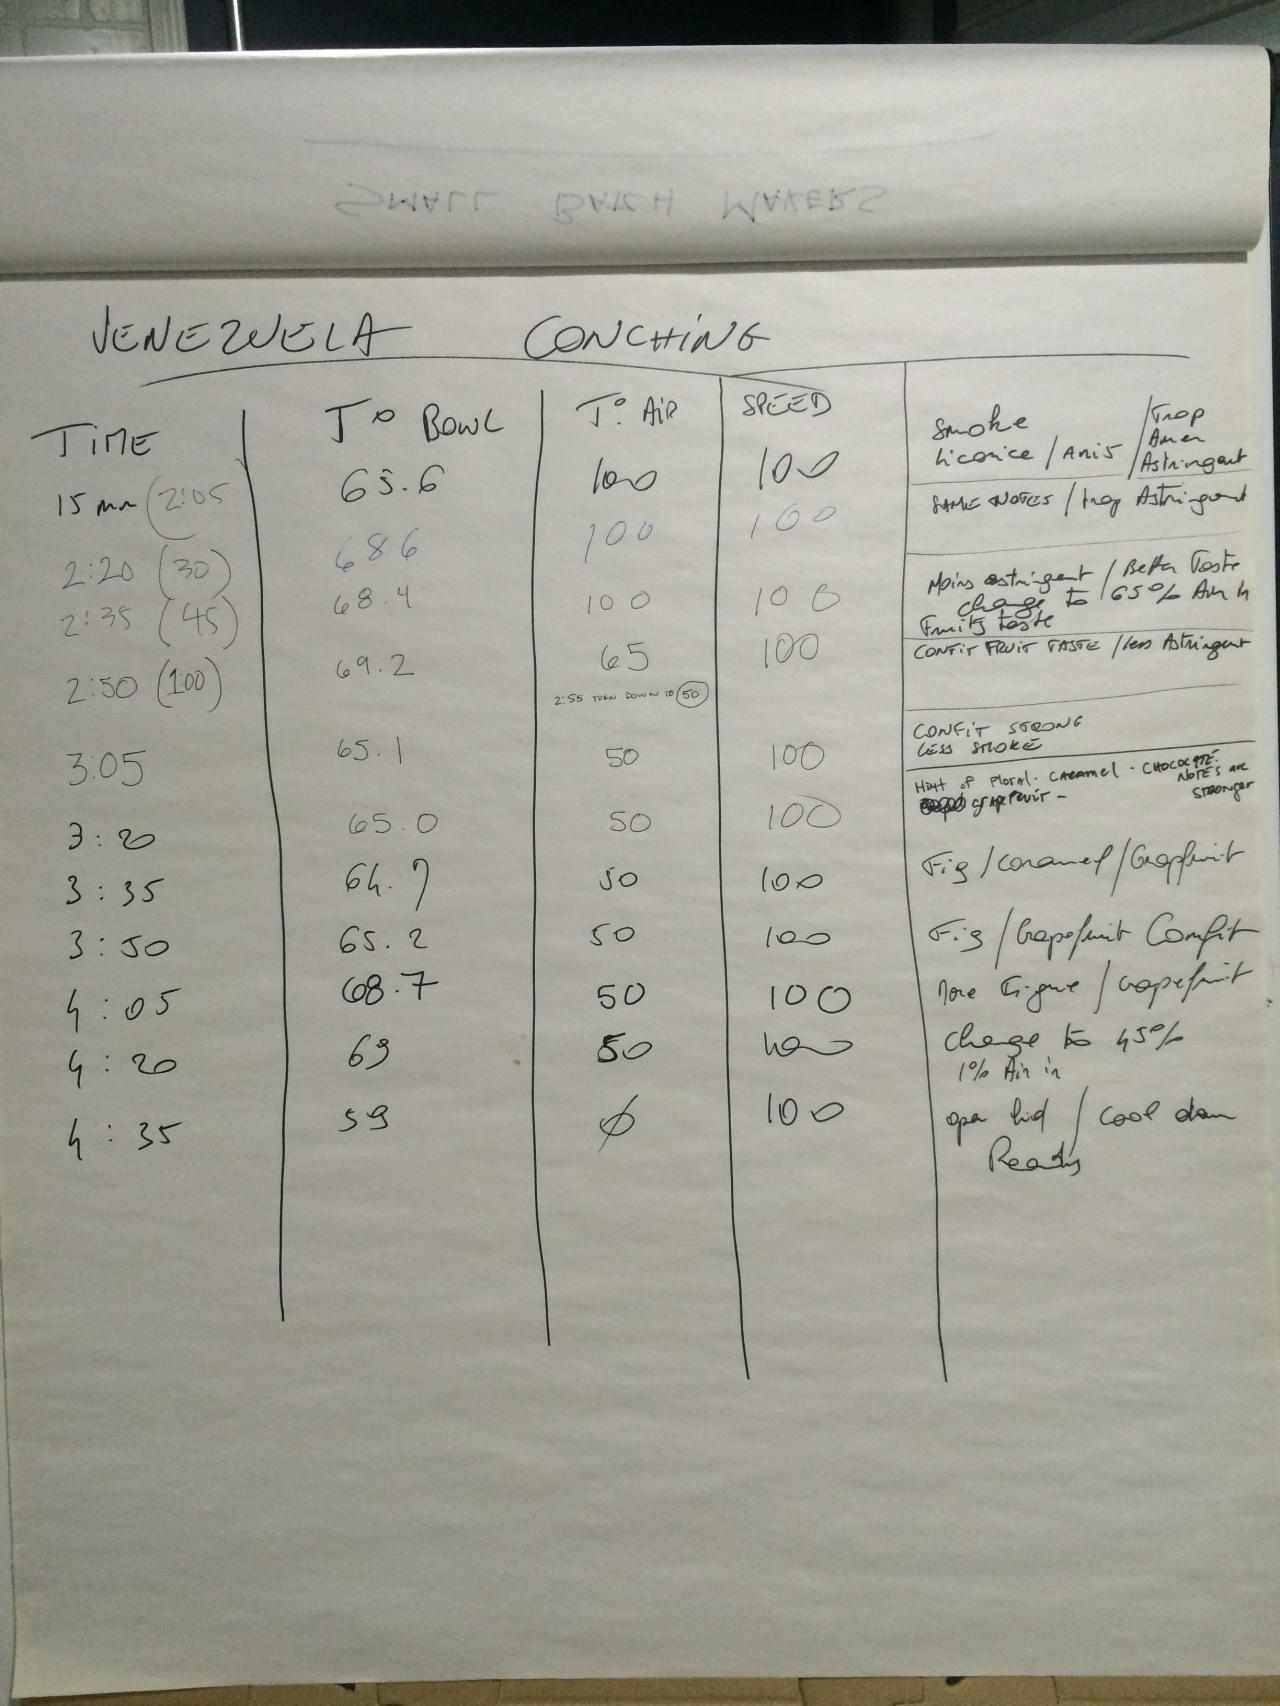 SMALL BATCH MAKERS
VENEZUELA CONCHING
TIME T° BOWL T°. AIR SPEED
Smoke / Trop
Licorice / Anis / Amer
/ Astringent
15 mn (2:05 65.6 100 100
SAME NOTES / trop Astringent
2:20 (30) 68.6 100 100
Moins astringent / Better Taste
change to 65% Air In
Fruits taste
2:35 (45) 68.4 100 100
CONFIT FRUIT TASTE / less Astringent
2:50 (1:00) 69.2 65 100
2:55 TURN DOWN TO 50
CONFIT STRONG
LESS SMOKE
3:05 65.1 50 100
Hint of Floral. CARAMEL. CHOCOLATE.
NOTES ARE
GRAPEFRUIT - STRONGER
3:20 65.0 50 100
Fig / Caramel / Grapfruit
3:35 64.7 50 100
3:50 65.2 50 100 Fig / Grapefruit Comfit
4:05 68.7 50 100 More Figue / Grapefruit
4:20 69 50 100 Change to 45%
1% Air in
4:35 59 ∅ 100 open lid / Cool down
Ready